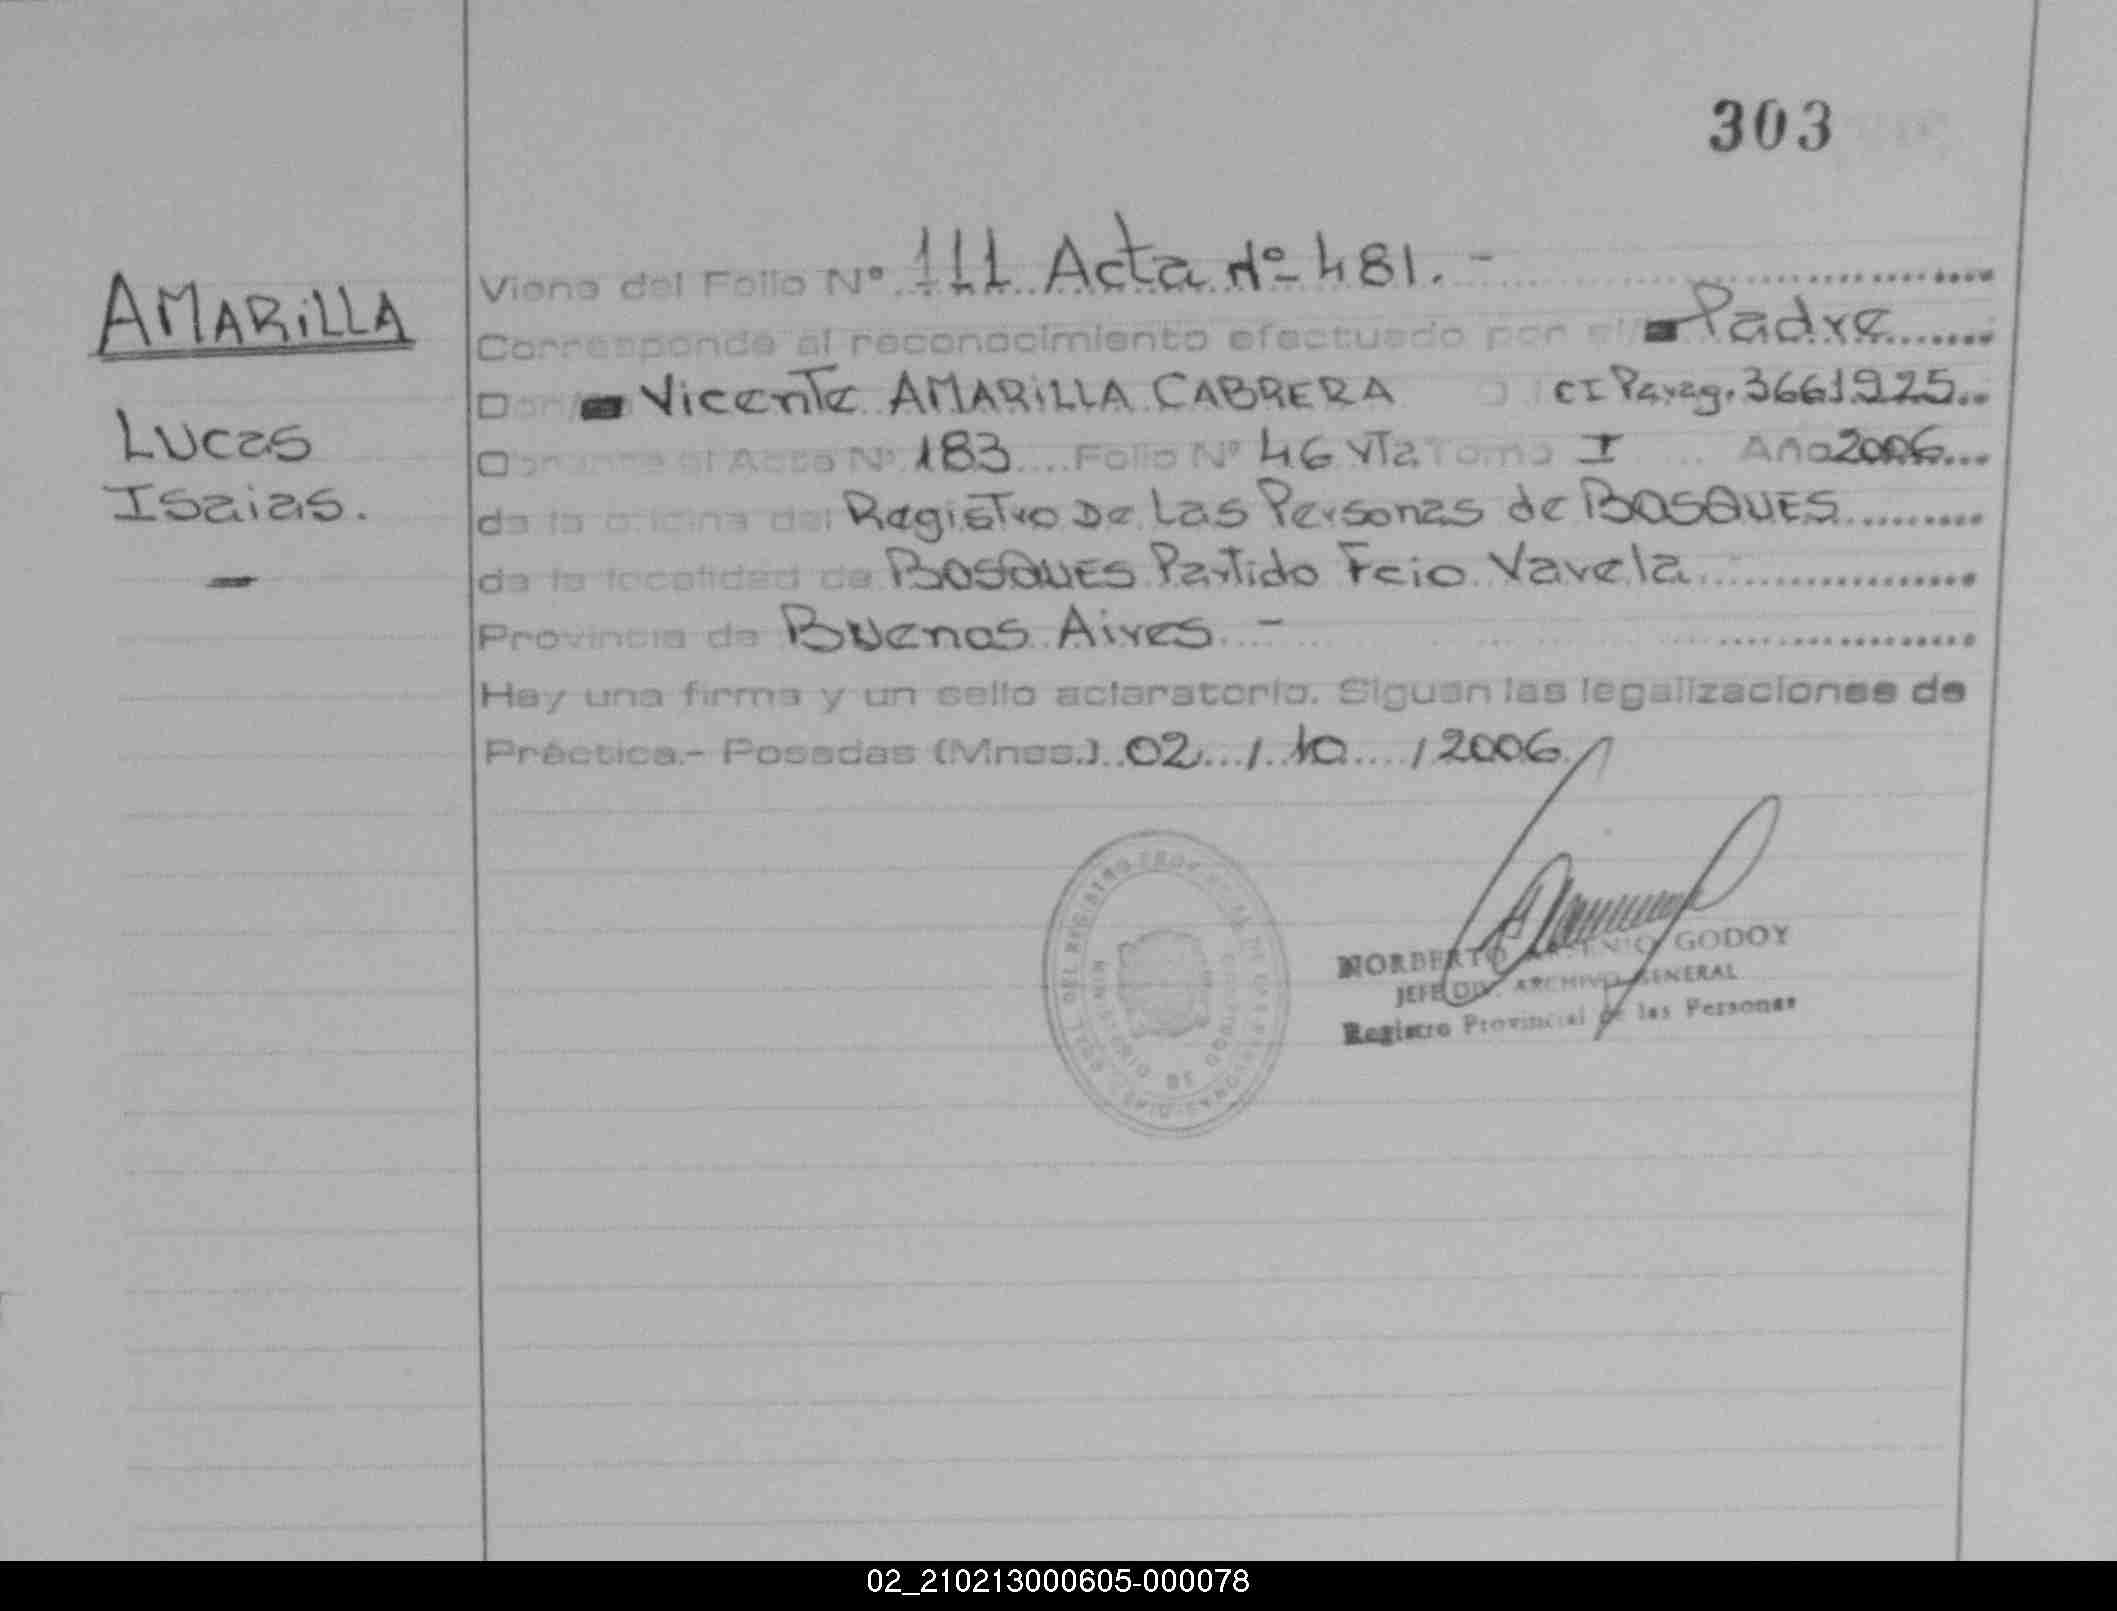 303
AMARILLA
Lucas
Isaias.
-
Viene del Folio Nº 111 Acta Nº 481.-
Corresponde al reconocimiento efectuado por el/ Padre
Don/ Vicente AMARILLA CABRERA D CI Parag. 3661925
Obrante al Acta Nº 183 Folio Nº 46 vta Tomo I Año 2006
de la oficina del Registro De Las Personas de BOSQUES
de la localidad de BOSQUES Partido Fcio Varela
Provincia de Buenos Aires -
Hay una firma y un sello aclaratorio. Siguen las legalizaciones de
Práctica.- Posadas (Mnes.) 02 / 10 / 2006
DEL REGISTRO
MINISTERIO DE GOBIERNO
NORBERTO GODOY
JEFE DIV. ARCHIVO GENERAL
Registro Provincial de las Personas
02_210213000605-000078